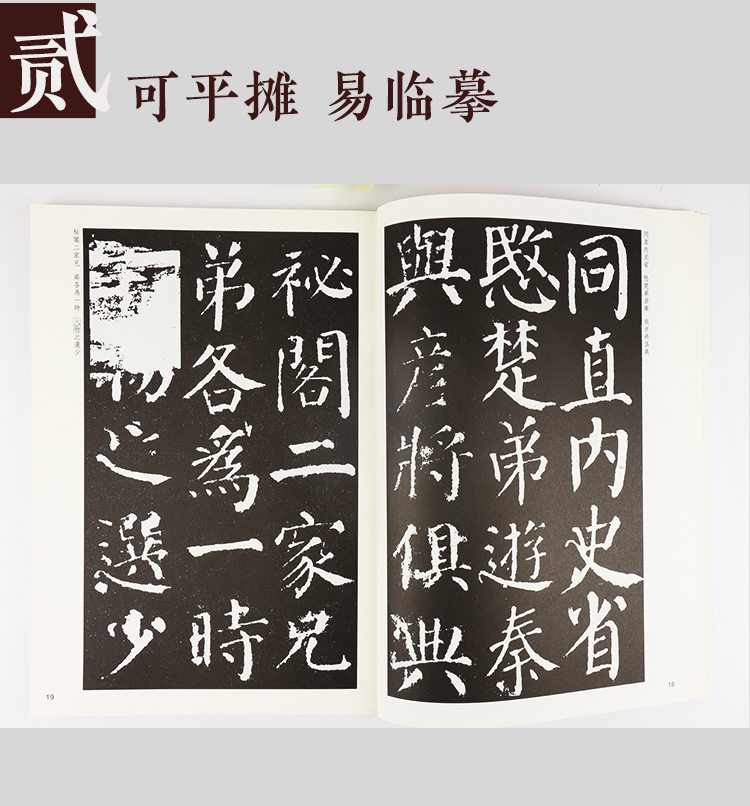 贰
可平摊 易临摹
同直内史省 愍楚弟游秦 與彦將俱典
同直内史省
愍楚弟遊秦
與彦將俱典
18
祕閣二家兄
弟各爲一時
物之選少
秘閣二家兄 弟各為一時 人物之選少
19